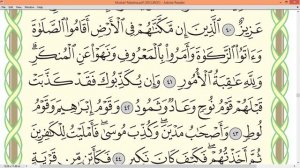 عَزِيزٌ ٤٠ ٱلَّذِينَ إِن مَّكَّنَّٰهُمْ فِى ٱلْأَرْضِ أَقَامُوا۟ ٱلصَّلَوٰةَ
وَءَاتَوُا۟ ٱلزَّكَوٰةَ وَأَمَرُوا۟ بِٱلْمَعْرُوفِ وَنَهَوْا۟ عَنِ ٱلْمُنكَرِ
وَلِلَّهِ عَٰقِبَةُ ٱلْأُمُورِ ٤١ وَإِن يُكَذِّبُوكَ فَقَدْ كَذَّبَتْ
قَبْلَهُمْ قَوْمُ نُوحٍ وَعَادٌ وَثَمُودُ ٤٢ وَقَوْمُ إِبْرَٰهِيمَ وَقَوْمُ
لُوطٍ ٤٣ وَأَصْحَٰبُ مَدْيَنَ وَكُذِّبَ مُوسَىٰ فَأَمْلَيْتُ لِلْكَٰفِرِينَ
ثُمَّ أَخَذْتُهُمْ فَكَيْفَ كَانَ نَكِيرِ ٤٤ فَكَأَيِّن مِّن قَرْيَةٍ